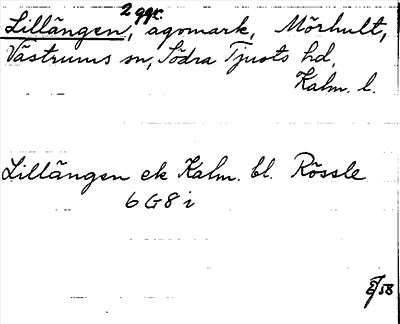 2 ggr.
Lillängen, ägomark, Mörhult,
Västrums sn, Södra Tjusts hd,
Kalm. l.
Lillängen ek Kalm. bl. Rössle
6 G 8 i